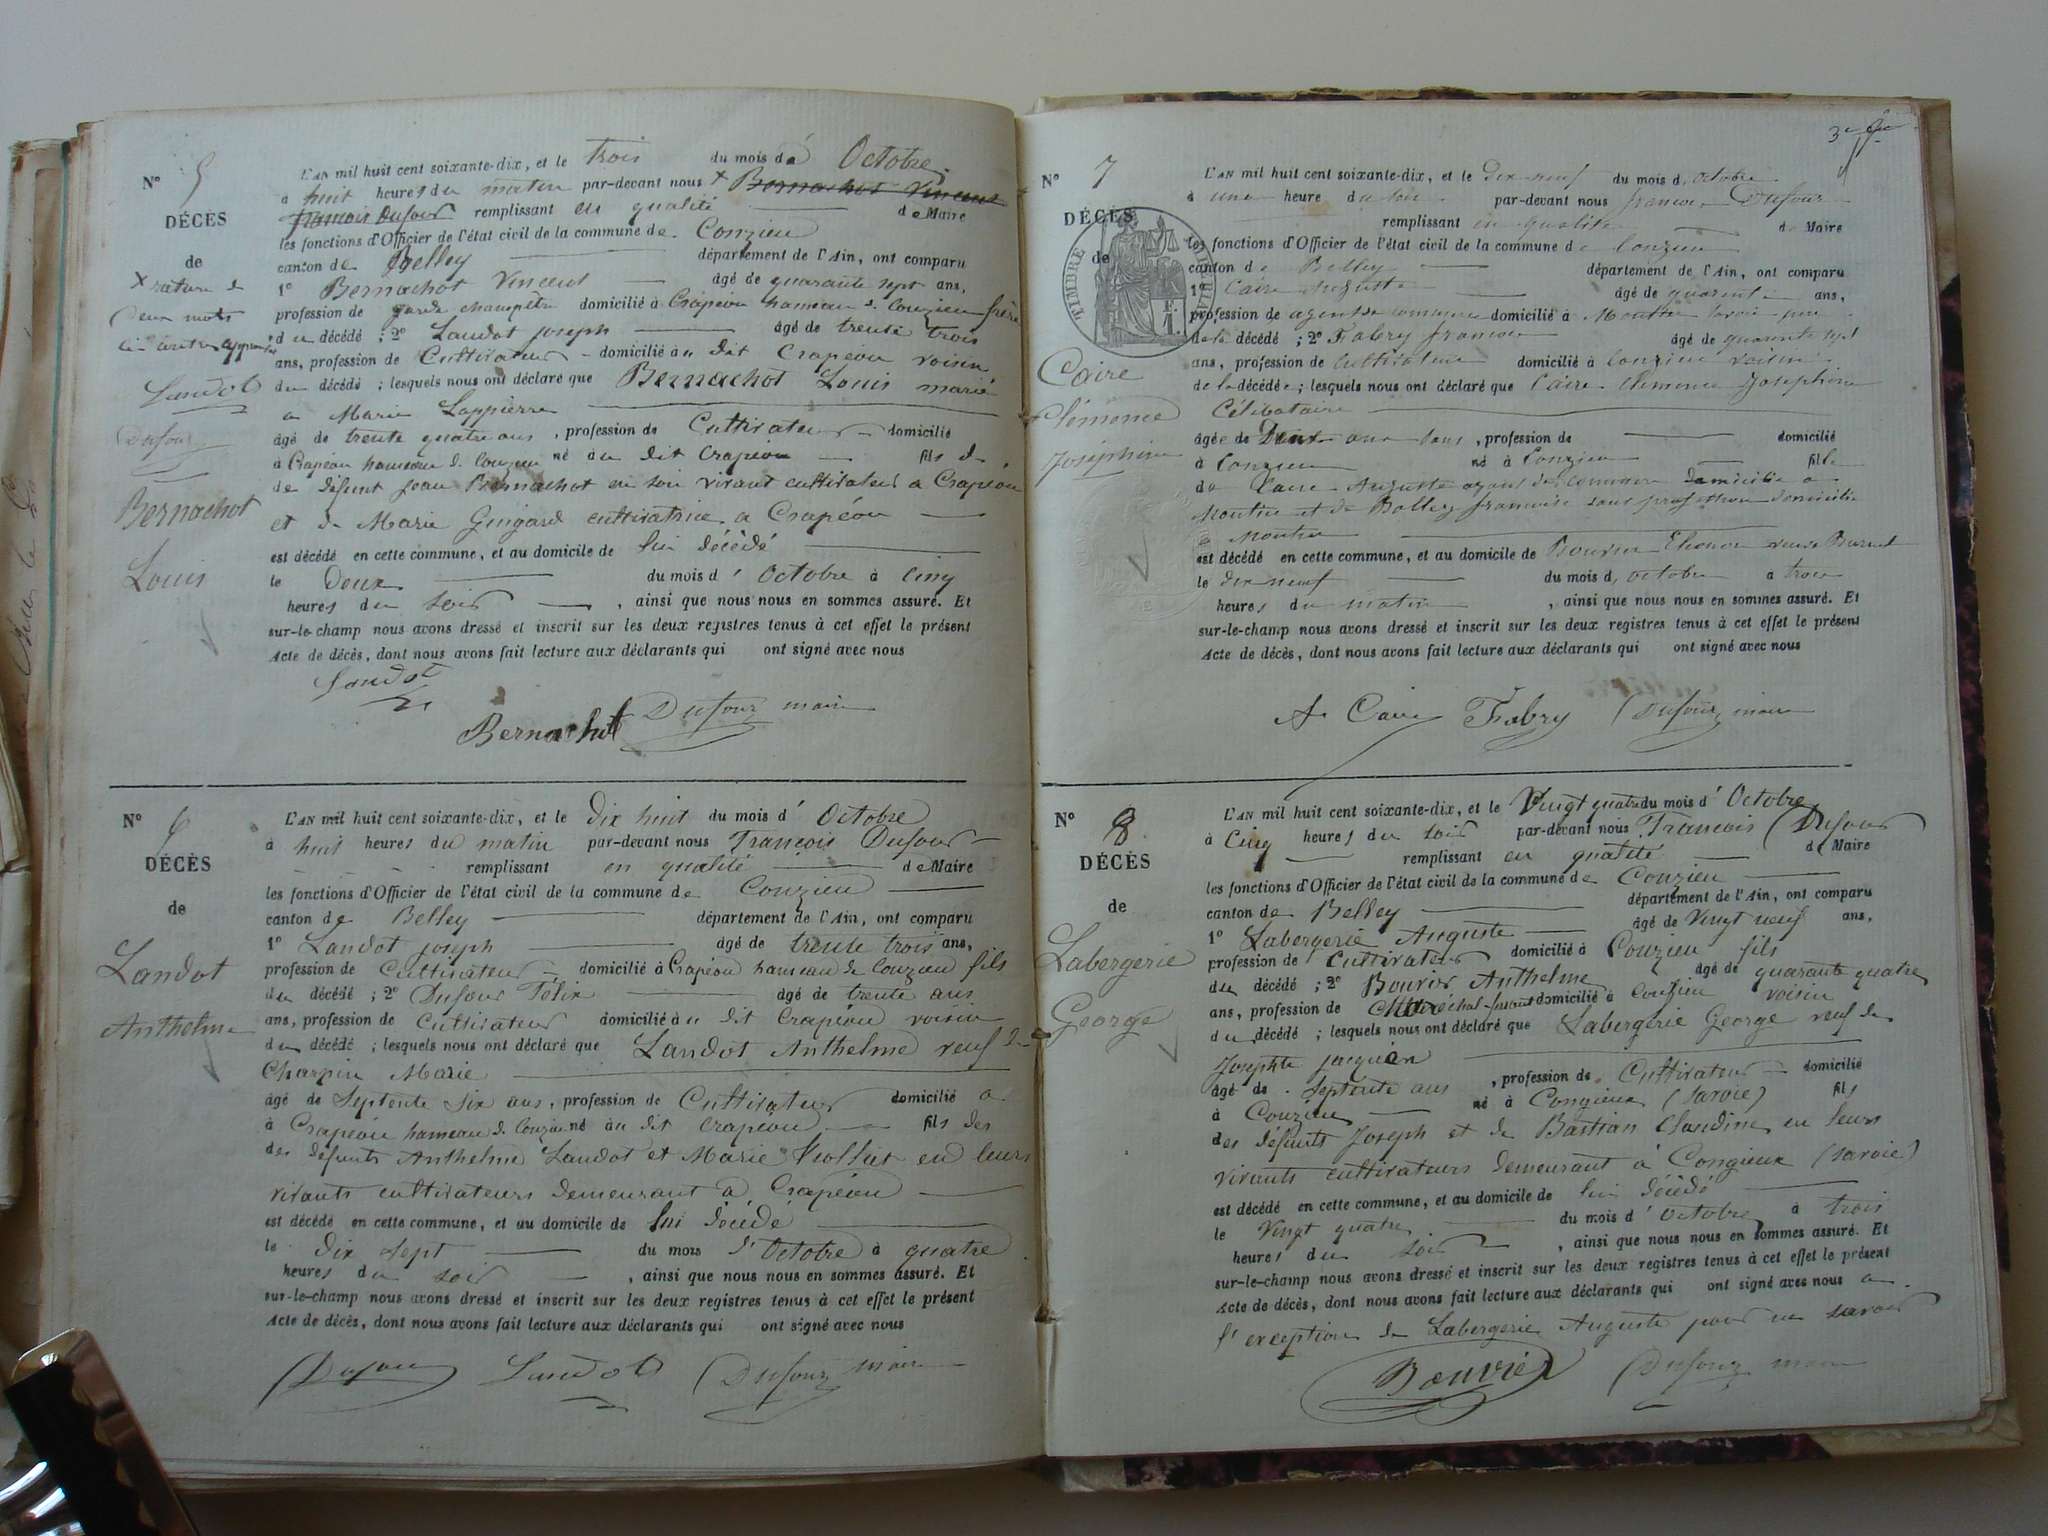 N° 5
DÉCÈS
de
X rature de
deux mots
ci-contre approuvée
Landot
Dufour
Bernachot
Louis
L'AN mil huit cent soixante-dix, et le trois du mois de Octobre
à huit heures du matin par-devant nous X Bernachot Vincent
françois Dufour remplissant en qualité de Maire
les fonctions d'Officier de l'état civil de la commune de Conzieu
canton de Belley département de l'Ain, ont comparu
1° Bernachot Vincent âgé de quarante sept ans,
profession de garde champêtre domicilié à Crapéou hameau de Conzieu frère
du décédé ; 2° Landot joseph âgé de trente trois
ans, profession de Cultivateur domicilié au dit Crapéou voisin
du décédé ; lesquels nous ont déclaré que Bernachot Louis marié
a Marie Lappierre
âgé de trente quatre ans, profession de Cultivateur domicilié
à Crapéou hameau de Conzieu né au dit Crapéou fils de
de défunt jean Bernachot en son vivant cultivateur a Crapéou
et de Marie Guigard cultivatrice a Crapéou
est décédé en cette commune, et au domicile de lui décédé
le Deux du mois d' Octobre à cinq
heures du soir , ainsi que nous nous en sommes assuré. Et
sur-le-champ nous avons dressé et inscrit sur les deux registres tenus à cet effet le présent
Acte de décès, dont nous avons fait lecture aux déclarants qui ont signé avec nous
Landot
Bernachot Dufour maire
N° 6
DÉCÈS
de
Landot
Anthelme
L'AN mil huit cent soixante-dix, et le dix huit du mois d' Octobre
à huit heures du matin par-devant nous François Dufour
remplissant en qualité de Maire
les fonctions d'Officier de l'état civil de la commune de Conzieu
canton de Belley département de l'Ain, ont comparu
1° Landot joseph âgé de trente trois ans,
profession de Cultivateur domicilié à Crapéou hameau de Conzieu fils
du décédé ; 2° Dufour Félix âgé de trente ans
ans, profession de Cultivateur domicilié au dit Crapéou voisin
du décédé ; lesquels nous ont déclaré que Landot Anthelme veuf de
Charpin Marie
âgé de Septente six ans, profession de Cultivateur domicilié a
à Crapéou hameau de Conzieu né au dit Crapéou fils des
des défunts Anthelme Landot et Marie en leurs
vivants cultivateurs demeurant à Crapéou
est décédé en cette commune, et au domicile de lui décédé
le dix sept du mois d'Octobre à quatre
heures du soir , ainsi que nous nous en sommes assuré. Et
sur-le-champ nous avons dressé et inscrit sur les deux registres tenus à cet effet le présent
Acte de décès, dont nous avons fait lecture aux déclarants qui ont signé avec nous
Dufour Landot Dufour maire
3e
N° 7
DÉCÈS
de
TIMBRE IMPÉRIAL
Caire
Clémence
Joséphine
L'AN mil huit cent soixante-dix, et le dix neuf du mois d' octobre
à une heure du soir par-devant nous francois Dufour
remplissant en qualité de Maire
les fonctions d'Officier de l'état civil de la commune de Conzieu
canton de Belley département de l'Ain, ont comparu
1° Caire Auguste âgé de quarente ans,
profession de agent de commerce domicilié à Moutier Savoie père
de la décédé ; 2° Fabry francois âgé de quarente sept
ans, profession de Cultivateur domicilié à Conzieu voisin
de la décédée ; lesquels nous ont déclaré que Caire Clemence Josephine
Célibataire
âgée de Deux ans , profession de domicilié
à Conzieu né à Conzieu fille
de Caire Auguste agent de commerce domicilié a
Moutier et de francoise sans profession domicilié
a Moutier
est décédé en cette commune, et au domicile de veuve
le dix neuf du mois d' octobre à trois
heures du matin , ainsi que nous nous en sommes assuré. Et
sur-le-champ nous avons dressé et inscrit sur les deux registres tenus à cet effet le présent
Acte de décès, dont nous avons fait lecture aux déclarants qui ont signé avec nous
A. Caire Fabry Dufour maire
N° 8
DÉCÈS
de
Labergerie
George
L'AN mil huit cent soixante-dix, et le Vingt quatre du mois d' Octobre
à Cinq heures du soir par-devant nous Francois Dufour
remplissant en qualité de Maire
les fonctions d'Officier de l'état civil de la commune de Conzieu
canton de Belley département de l'Ain, ont comparu
1° Labergerie Auguste âgé de Vingt neuf ans,
profession de Cultivateur domicilié à Conzieu fils
du décédé ; 2° Bouvier Anthelme âgé de quarante quatre
ans, profession de Maréchal-ferrant domicilié à Conzieu voisin
du décédé ; lesquels nous ont déclaré que Labergerie George veuf de
Josephte jacquin
âgé de Septente ans , profession de Cultivateur domicilié
à Conzieu né à Congieux (Savoie) fils
des défunts Joseph et de Bastian Claudine en leurs
vivants cultivateurs demeurant à Congieux (Savoie)
est décédé en cette commune, et au domicile de lui décédé
le Vingt quatre du mois d' Octobre à trois
heures du soir , ainsi que nous nous en sommes assuré. Et
sur-le-champ nous avons dressé et inscrit sur les deux registres tenus à cet effet le présent
Acte de décès, dont nous avons fait lecture aux déclarants qui ont signé avec nous a
l'exception de Labergerie Auguste pour ne savoir
Bouvier Dufour maire